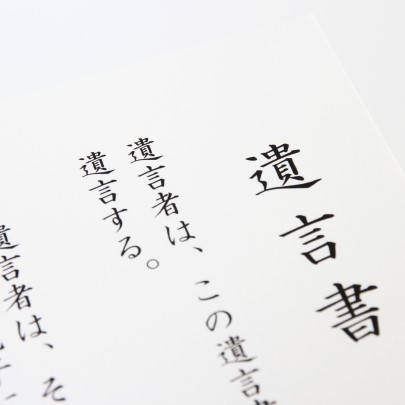 遺言書
遺言者は、この遺言書
遺言する。
遺言者は、そ